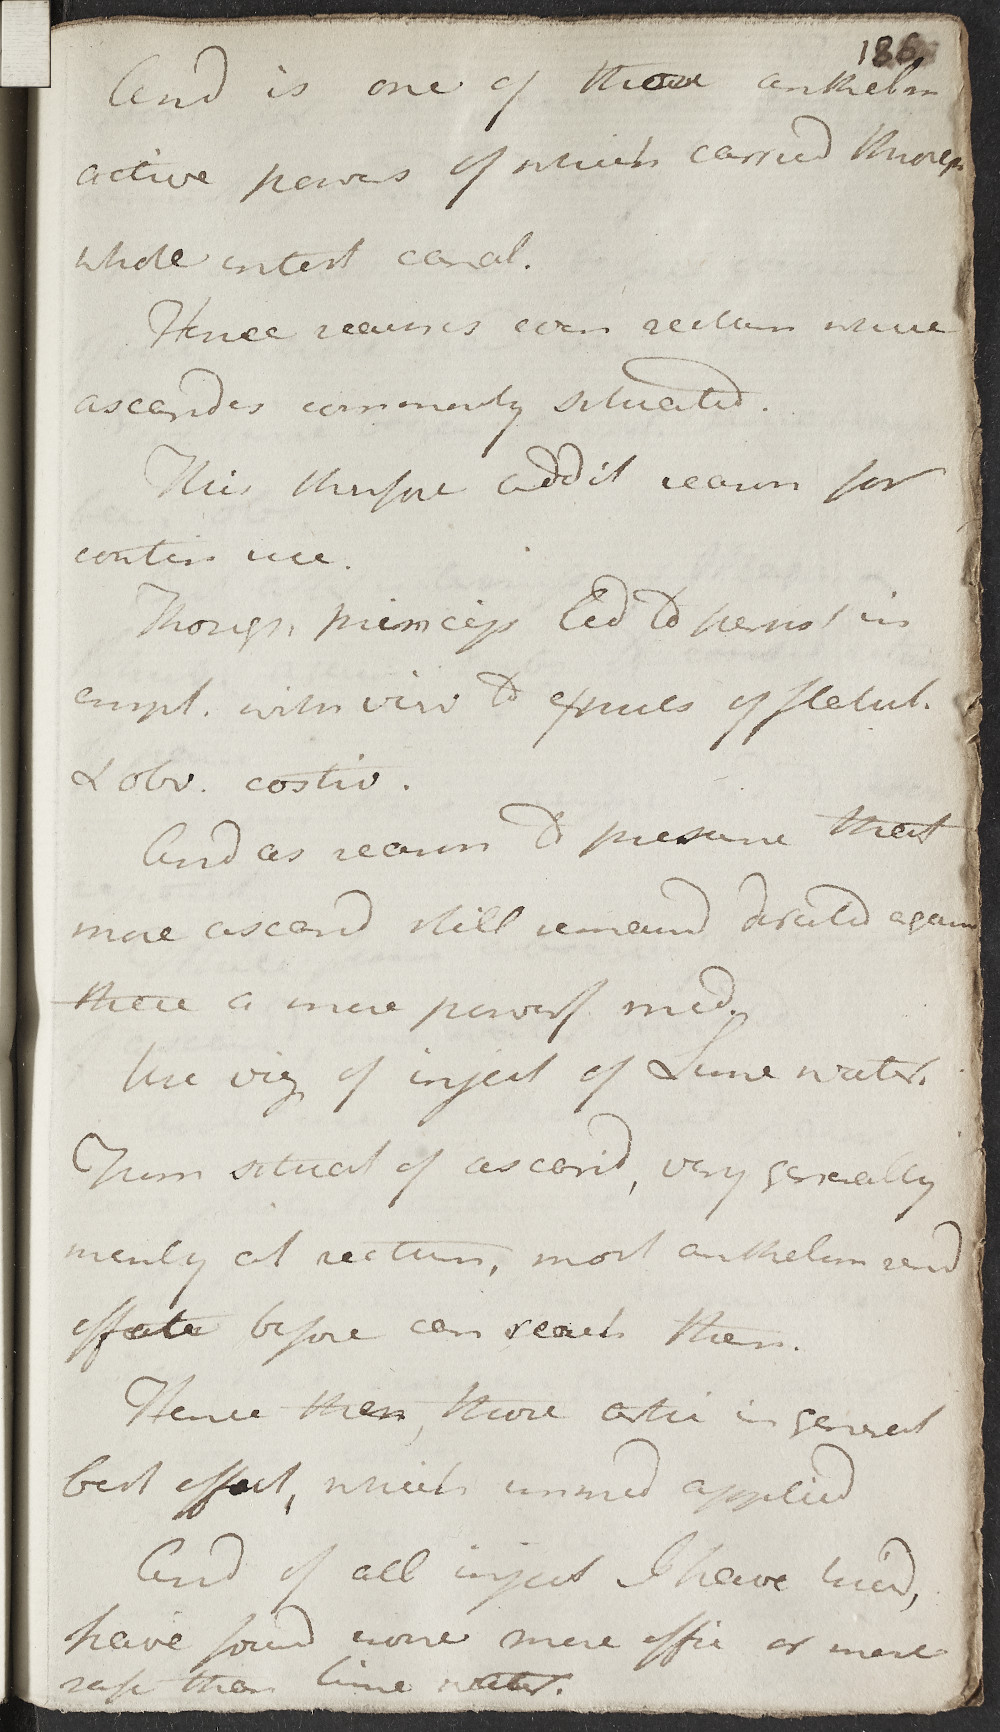 186
And is one of those anthelm
active powers of which carried through
whole intest canal.
Hence reaches even rectum where
ascarides commonly situated.
This therefore addit reason for
contin use.
Though princip Led to persist in
empl. with view to expuls of flatul.
& obv. costiv.
And as reason to presume that
more ascarid still remaind directed again
there a more powerf. med.
Use viz of inject of Lime water.
From situat of ascarid, very generally
merely at rectum, most anthelm rend
effete before can reach them.
Hence then, those artic in general
best effect, which immed applied
And of all inject I have tried,
have found none more effic or more
safe than lime water.